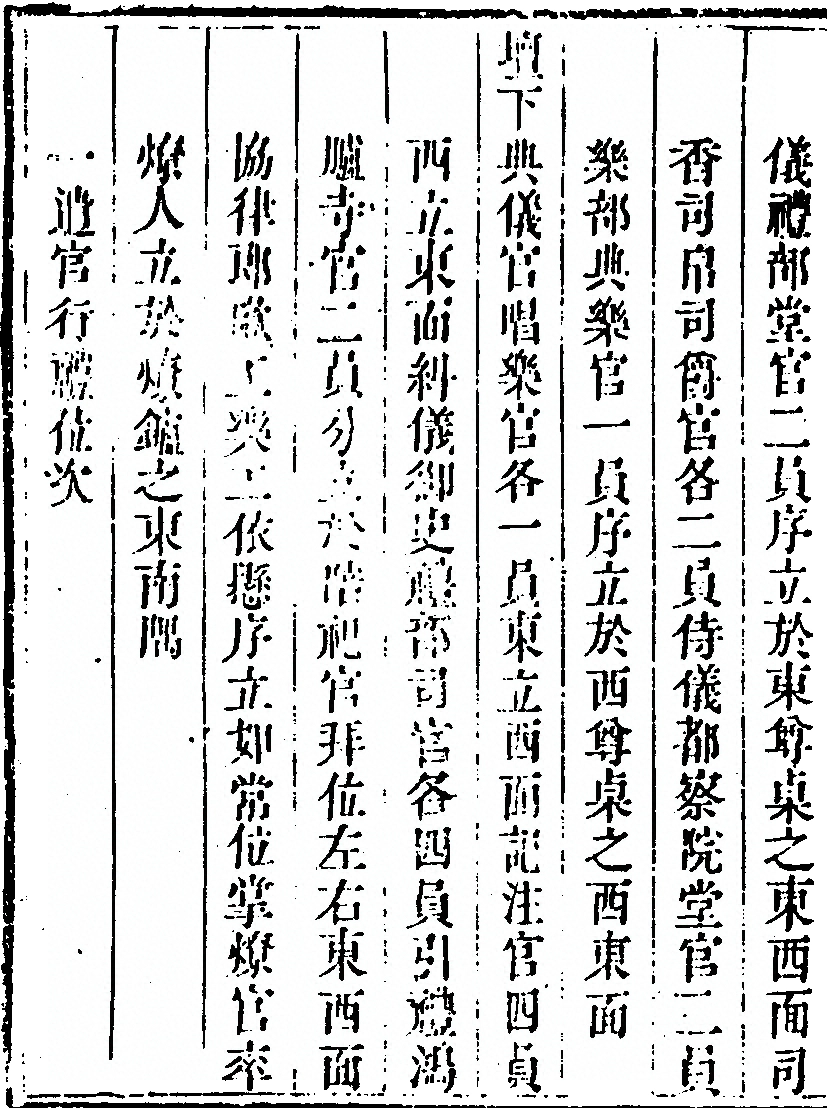 儀禮部堂官二員序立於東尊桌之東西面司
香司帛司爵官各二員侍儀都察院堂官二員
樂部典樂官一員序立於西尊桌之西東面
壇下典儀官唱樂官各一員東立西面記注官四員
西立東面糾儀御史禮部司官各四員引禮鴻
臚寺官二員分立於陪祀官拜位左右東西面
協律郎歌工樂工依懸序立如常位掌燎官率
燎人立於燎爐之東南隅
一遣官行禮位次